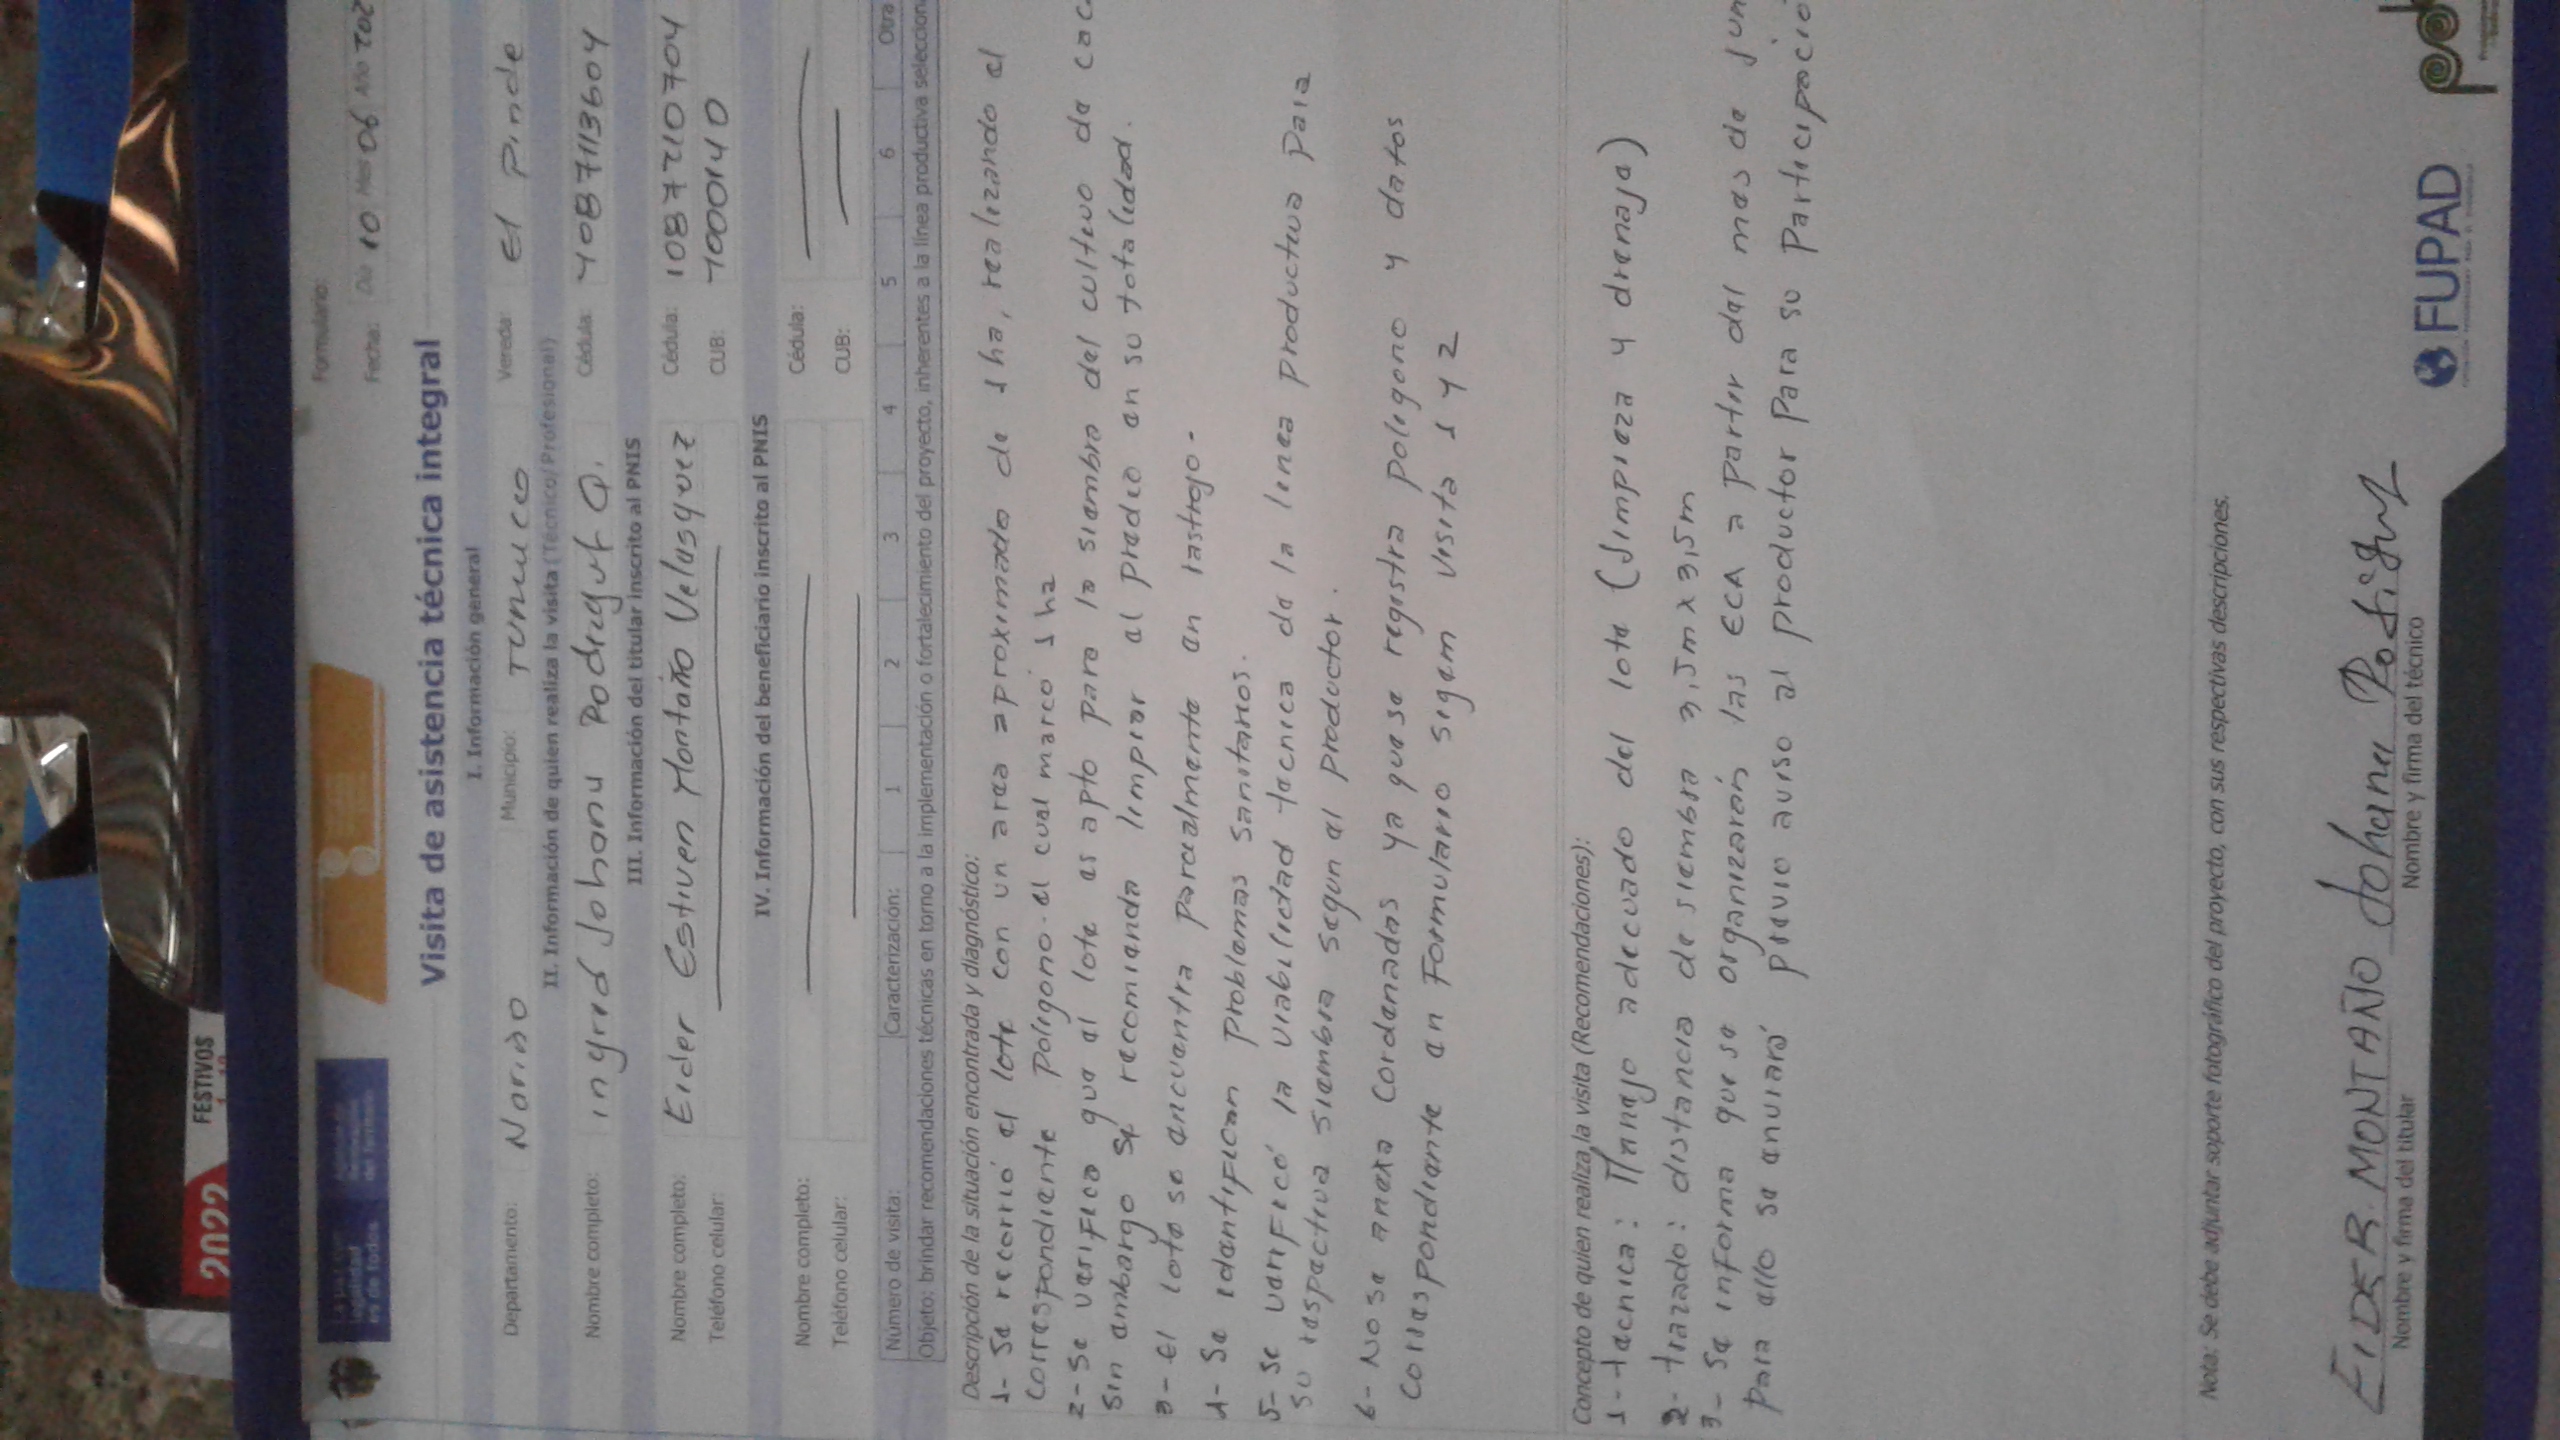 2022
FESTIVOS
Formulario:
Fecha: Día 10 Mes 06 Año 202
Visita de asistencia técnica integral
I. Información general
Departamento: Nariño Municipio: Tumaco Vereda: El Pinde
II. Información de quien realiza la visita (Técnico/Profesional)
Nombre completo: ingrid Johanu Cédula: 1087113604
III. Información del titular inscrito al PNIS
Nombre completo: Eider Estiven Montaño Velasquez Cédula: 1087210704
Teléfono celular: CUB: 10001410
IV. Información del beneficiario inscrito al PNIS
Nombre completo: Cédula:
Teléfono celular: CUB:
Número de visita: Caracterización: 1 2 3 4 5 6 Otra
Objeto: brindar recomendaciones técnicas en torno a la implementación o fortalecimiento del proyecto, inherentes a la línea productiva seleccion
Descripción de la situación encontrada y diagnóstico:
1- Se recorrió el lote con un area aproximado de 1 ha, realizando el
correspondiente poligono. el cual marcó 1 ha
2- Se verifico que el lote es apto para la siembra del cultivo de cac
sin embargo se recomienda limpiar el predio en su totalidad.
3- El lote se encuentra parcialmente en rastrojo-
4- Se identifican problemas sanitarios.
5- Se verificó la viabilidad tecnica de la linea productiva para
su respectiva siembra segun el productor.
6- No se anexa Cordenadas ya que se registra poligono y datos
correspondiente en Formulario sigem visita 1 y 2
Concepto de quien realiza la visita (Recomendaciones):
1- tecnica: Manejo adecuado del lote (Limpieza y drenaje)
2- trazado: distancia de siembra 3,5m x 3,5m
3- Se informa que se organizarán las ECA a partir del mes de Jun
para ello se enviará previo aviso al productor para su participacio
Nota: Se debe adjuntar soporte fotográfico del proyecto, con sus respectivas descripciones.
EIDER. MONTAÑO
Nombre y firma del titular
Johanu
Nombre y firma del técnico
FUPAD